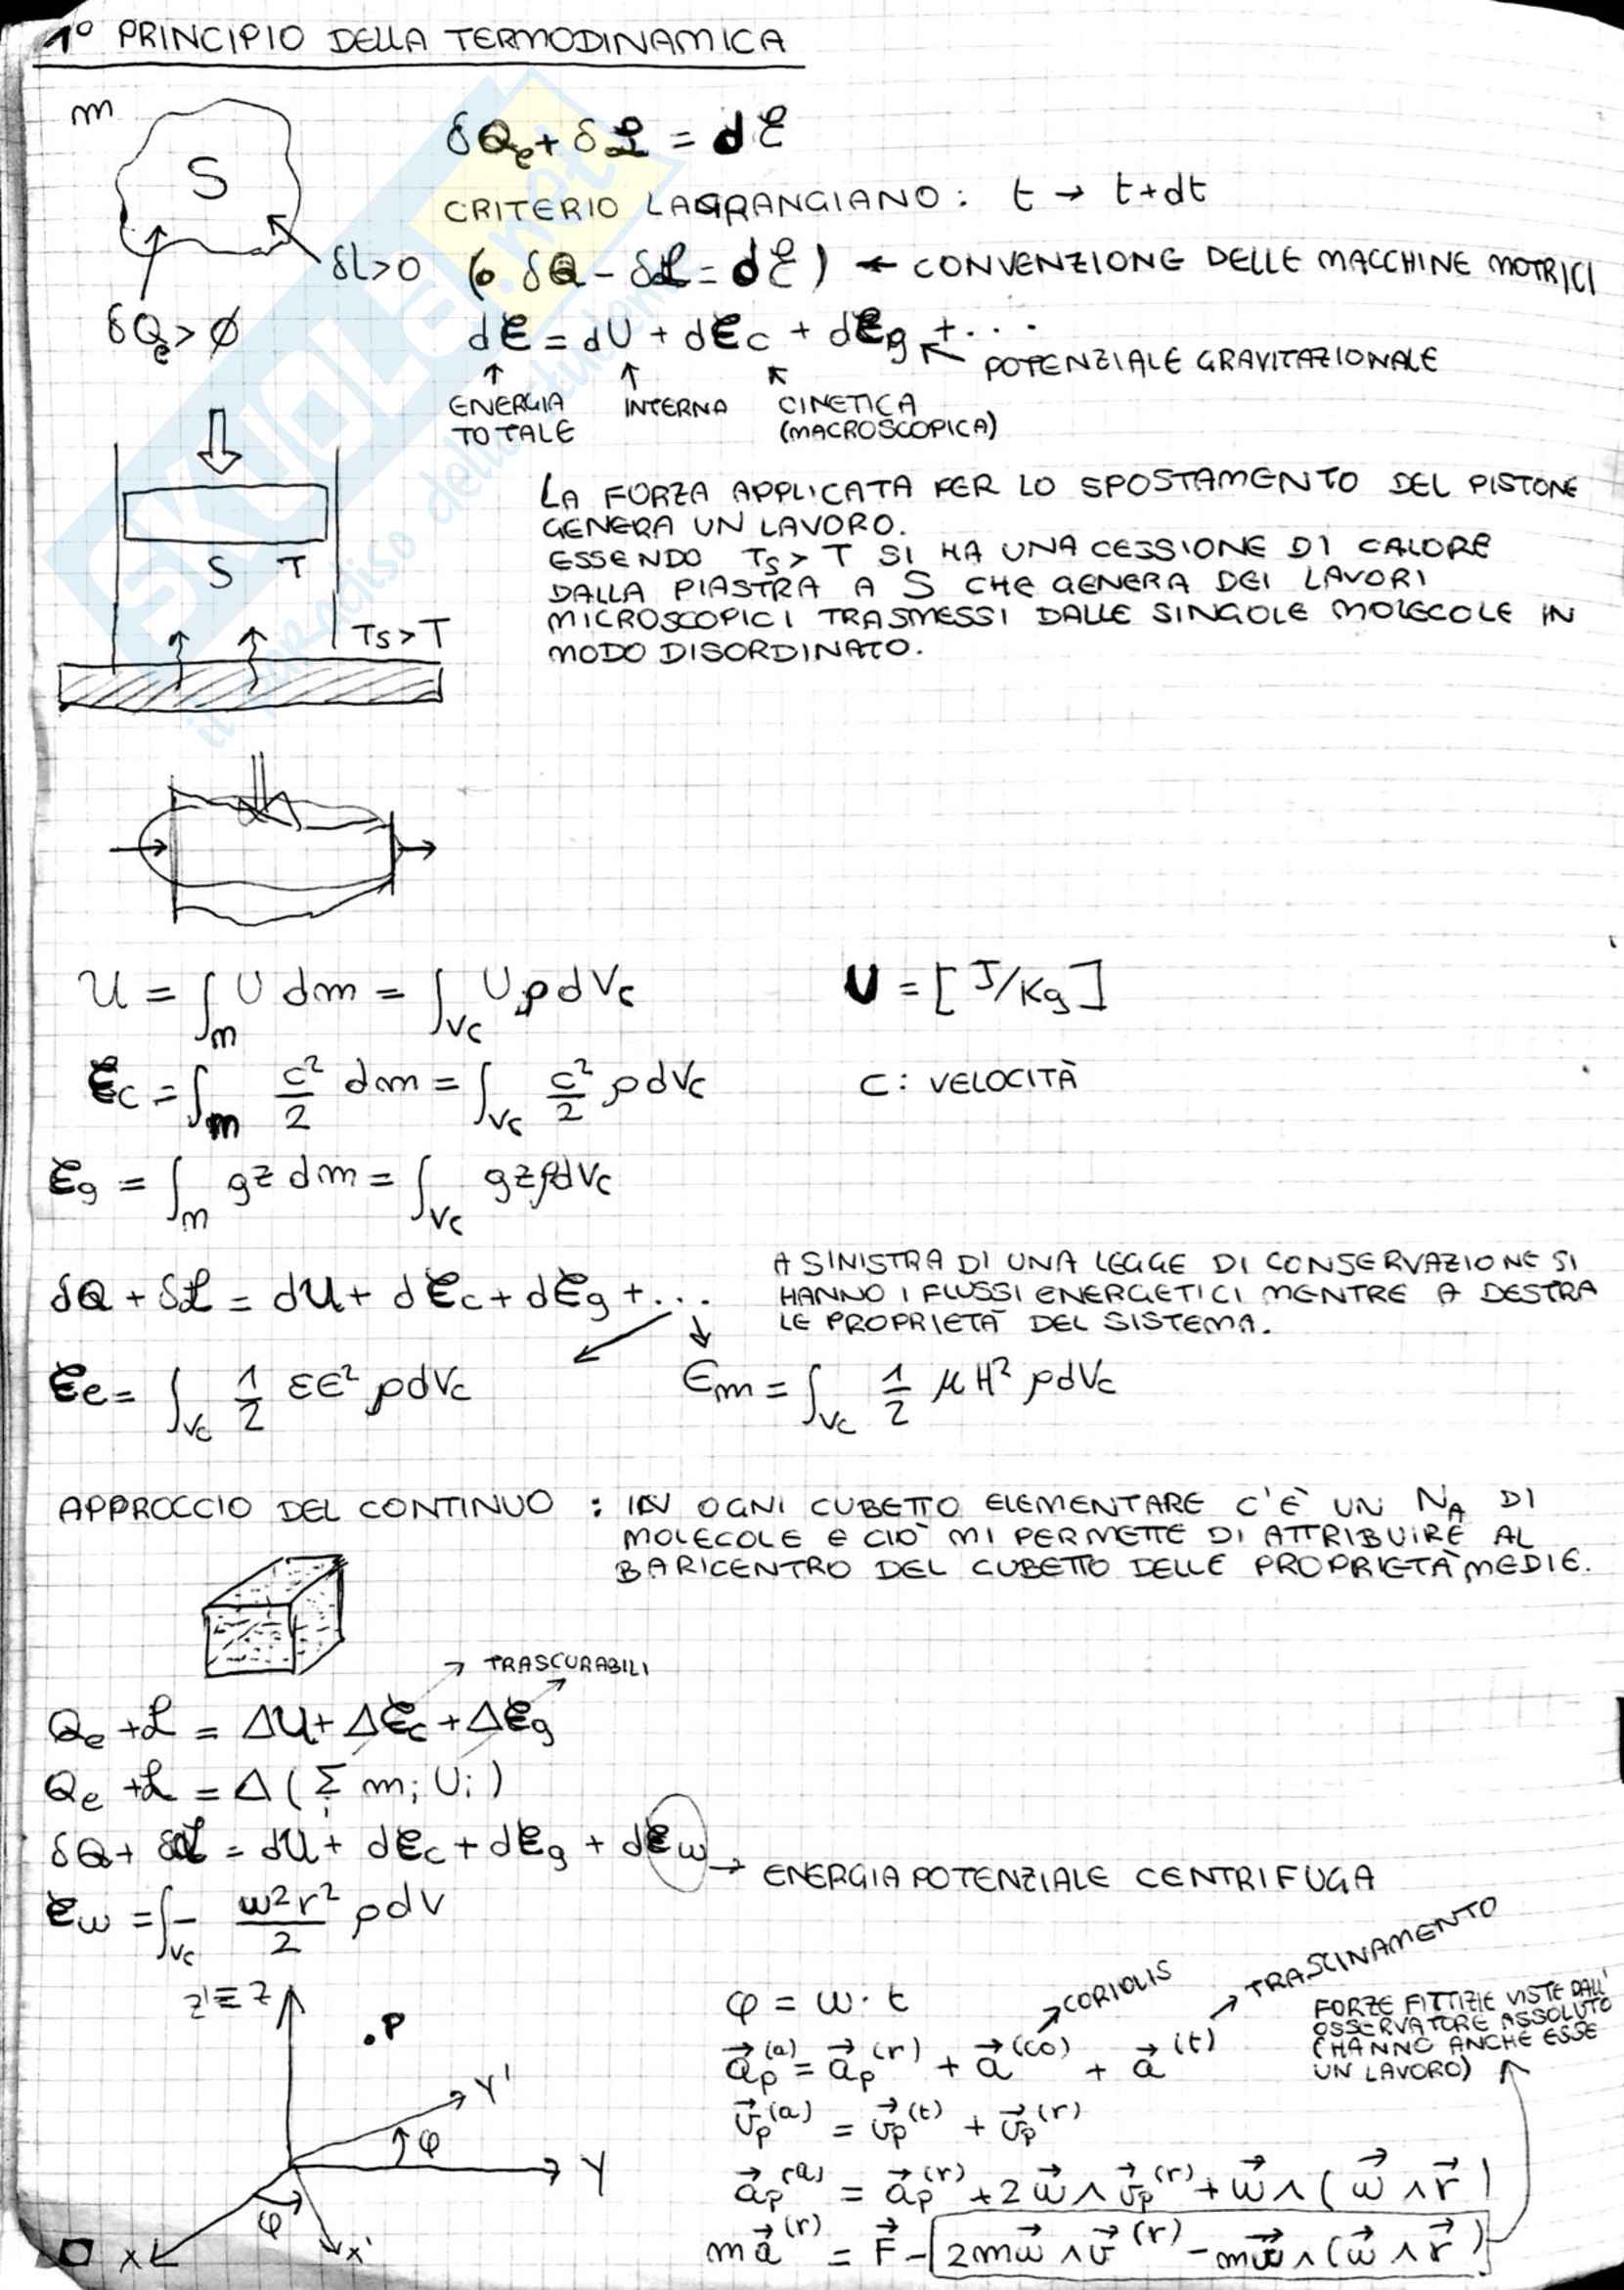 1° PRINCIPIO DELLA TERMODINAMICA
m
S
δQe + δL = dE
CRITERIO LAGRANGIANO: t → t+dt
δL>0 (o δQ - δL = dE) ← CONVENZIONE DELLE MACCHINE MOTRICI
δQe > 0
dE = dU + dEc + dEg + ...
POTENZIALE GRAVITAZIONALE
ENERGIA TOTALE
INTERNA
CINETICA (MACROSCOPICA)
S T
Ts > T
LA FORZA APPLICATA PER LO SPOSTAMENTO DEL PISTONE
GENERA UN LAVORO.
ESSENDO Ts > T SI HA UNA CESSIONE DI CALORE
DALLA PIASTRA A S CHE GENERA DEI LAVORI
MICROSCOPICI TRASMESSI DALLE SINGOLE MOLECOLE IN
MODO DISORDINATO.
SKUOLA.net
il paradiso dello studente
U = ∫m U dm = ∫Vc U ρ dVc U = [J/Kg]
Ec = ∫m c²/2 dm = ∫Vc c²/2 ρ dVc C: VELOCITÀ
Eg = ∫m gz dm = ∫Vc gz ρ dVc
δQ + δL = dU + dEc + dEg + ...
A SINISTRA DI UNA LEGGE DI CONSERVAZIONE SI
HANNO I FLUSSI ENERGETICI MENTRE A DESTRA
LE PROPRIETÀ DEL SISTEMA.
Ee = ∫Vc 1/2 εE² ρ dVc Em = ∫Vc 1/2 μH² ρ dVc
APPROCCIO DEL CONTINUO : IN OGNI CUBETTO ELEMENTARE C'È UN NA DI
MOLECOLE E CIÒ MI PERMETTE DI ATTRIBUIRE AL
BARICENTRO DEL CUBETTO DELLE PROPRIETÀ MEDIE.
→ TRASCURABILI
Qe + L = ΔU + ΔEc + ΔEg
Qe + L = Δ(Σi mi Ui)
δQ + δL = dU + dEc + dEg + dEω → ENERGIA POTENZIALE CENTRIFUGA
Eω = ∫Vc - ω²r²/2 ρ dV
Z'≡Z
.P
Y'
φ
Y
φ
X
X'
φ = ω·t
CORIOLIS
TRASCINAMENTO
a⃗p(a) = a⃗p(r) + a⃗(co) + a⃗(t)
FORZE FITTIZIE VISTE DALL'
OSSERVATORE ASSOLUTO
(HANNO ANCHE ESSE
UN LAVORO)
v⃗p(a) = v⃗p(t) + v⃗p(r)
a⃗p(a) = a⃗p(r) + 2ω⃗ ∧ v⃗p(r) + ω⃗ ∧ (ω⃗ ∧ r⃗)
ma⃗(r) = F⃗ - 2mω⃗ ∧ v⃗(r) - mω⃗ ∧ (ω⃗ ∧ r⃗)